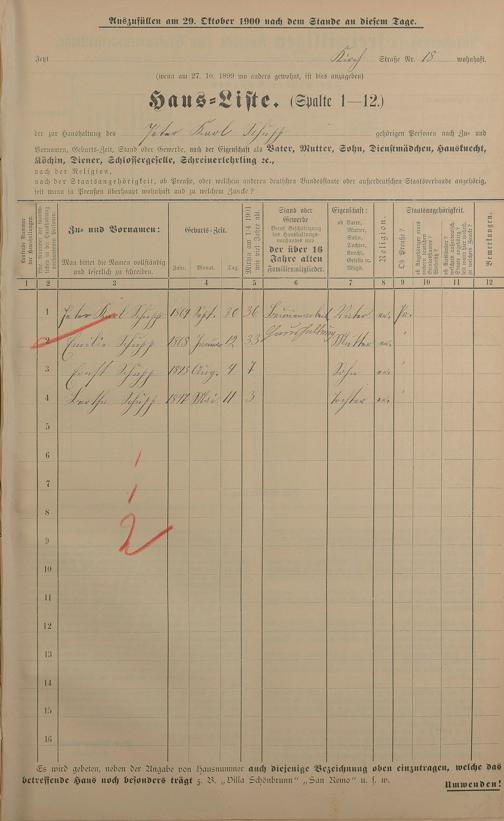 Auszufüllen am 29. Oktober 1900 nach dem Stande an diesem Tage.
Jetzt Kirch Straße Nr. 18 wohnhaft.
(wenn am 27. 10. 1899 wo anders gewohnt, ist dies anzugeben)
Haus-Liste. (Spalte 1—12.)
der zur Haushaltung des Peter Karl Schupp gehörigen Personen nach Zu- und
Vornamen, Geburts-Zeit, Stand oder Gewerbe, und der Eigenschaft als Vater, Mutter, Sohn, Dienstmädchen, Hausknecht,
Köchin, Diener, Schlossergeselle, Schreinerlehrling 2c.,
nach der Religion,
nach der Staatsangehörigkeit, ob Preuße, oder welchem anderen deutschen Bundesstaate oder außerdeutschen Staatsverbande angehörig,
seit wann in Preußen überhaupt wohnhaft und zu welchem Zwecke?
Zu- und Vornamen:
Man bittet die Namen vollständig und leserlich zu schreiben.
Geburts-Zeit.
Jahr. Monat. Tag.
Mithin am 1/4 1901 wie viel Jahre alt.
Stand oder Gewerbe
der über 16 Jahre alten Familienmitglieder.
Eigenschaft:
ob Vater, Mutter, Sohn, Tochter,
Religion.
Staatsangehörigkeit.
Ob Preuße?
Bemerkungen.
1 2 3 4 5 6 7 8 9 10 11 12
1 Peter Karl Schupp 1864 Sept. 20 36 Vater ev. Ja.
2 Emilie Schupp 1868 Januar 12 33 Haushaltung Mutter ev. "
3 Ernst Schupp 1893 Aug. 4 7 Sohn ev. "
4 Bertha Schupp 1897 Mai 11 3 Tochter ev. "
5
6
7
8
2
9
10
11
12
13
14
15
16
Es wird gebeten, neben der Angabe von Hausnummer auch diejenige Bezeichnung oben einzutragen, welche das
betreffende Haus noch besonders trägt z. B. „Villa Schönbrunn" „San Remo" u. s. w.
Umwenden!